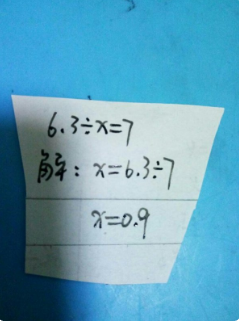 6.3÷x=7
解：x=6.3÷7
x=0.9